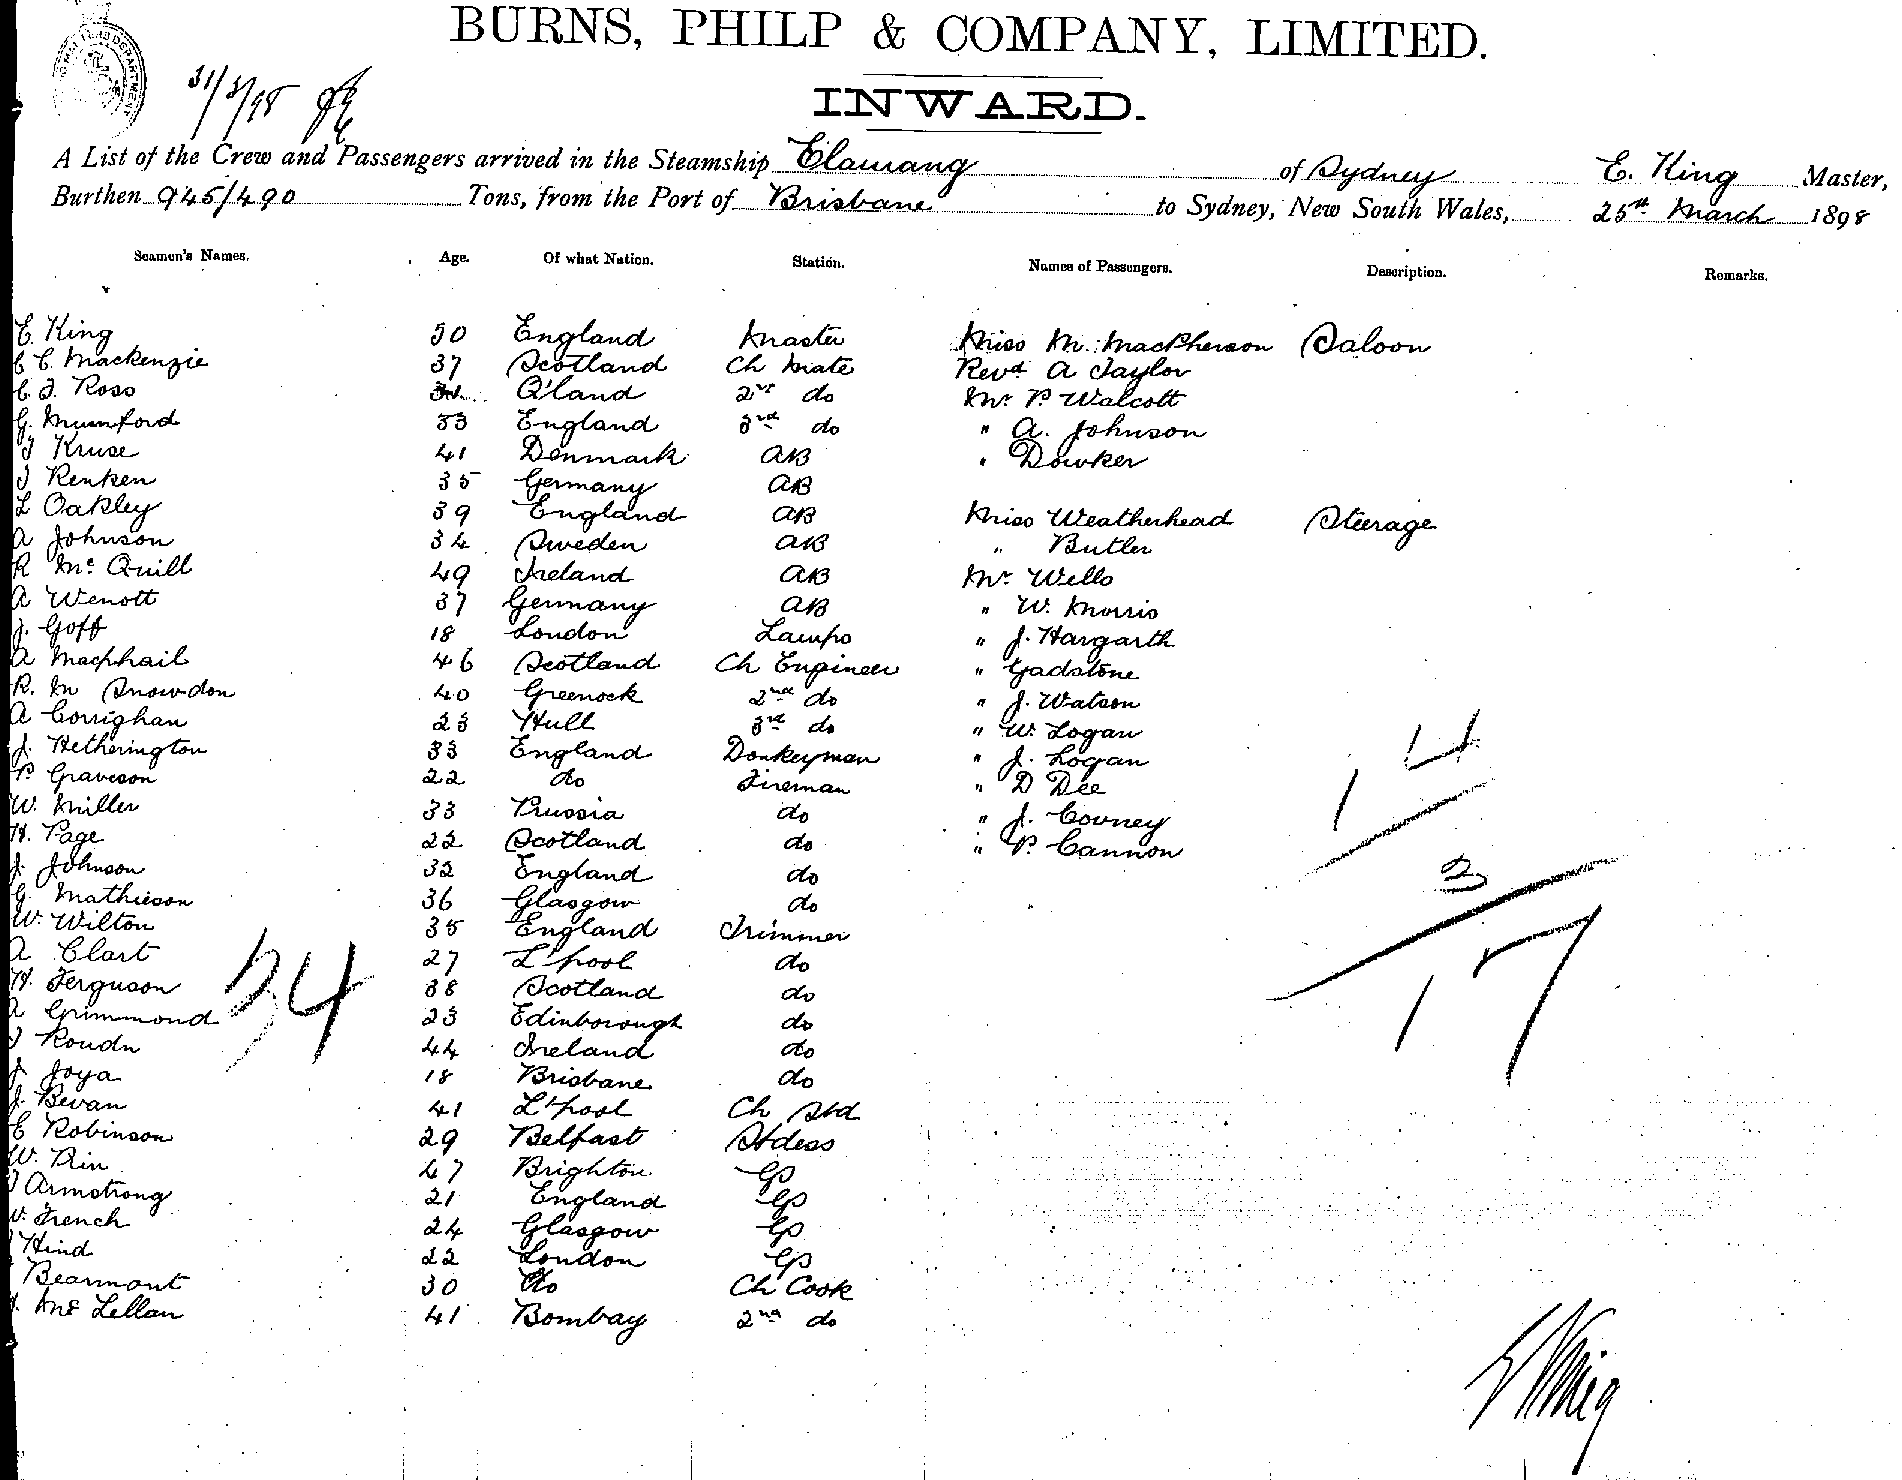 BURNS, PHILP & COMPANY, LIMITED.
31/3/98
INWARD.
A List of the Crew and Passengers arrived in the Steamship Elamang of Sydney E. King Master,
Burthen 945/490 Tons, from the Port of Brisbane to Sydney, New South Wales, 25th March 1898
Seamen's Names. Age. Of what Nation. Station. Names of Passengers. Description. Remarks.
E. King 50 England Master Miss M. MacPherson Saloon
C C. Mackenzie 37 Scotland Ch Mate Revd A Taylor
C J. Ross Q'land 2nd do Mr P. Walcott
G. Mumford 33 England 3rd do " A. Johnson
J Kruse 41 Denmark AB " Dowker
J Renken 35 Germany AB
L Oakley 39 England AB Miss Weatherhead Steerage
A Johnson 34 Sweden AB " Butler
R Mc Quill 49 Ireland AB Mr Wells
A Wenott 37 Germany AB " W. Morris
J. Goff 18 London Lamps " J. Hargarth
A Macphail 46 Scotland Ch Engineer " Gadstone
R. M Snowdon 40 Greenock 2nd do " J. Watson
A Corrighan 23 Hull 3rd do " W. Logan
J. Hetherington 33 England Donkeyman " J. Logan
P. Graveson 22 do Fireman " D Dee
W. Miller 33 Prussia do " J. Covney
H. Page 22 Scotland do " P. Cannon
J. Johnson 32 England do
G. Mathieson 36 Glasgow do
W. Wilton 35 England Trimmer
A Clart 27 L'pool do
H. Ferguson 38 Scotland do
A Grimmond 23 Edinborough do
J Roudn 44 Ireland do
J. Joya 18 Brisbane do
J. Bevan 41 L'pool Ch Std
C Robinson 29 Belfast Stdess
W. Rin 47 Brighton
J Armstrong 21 England
W. French 24 Glasgow
Hind 22 London
Bearmont 30 do Ch Cook
Mc Lellan 41 Bombay 2nd do
34
14
3
17
E King